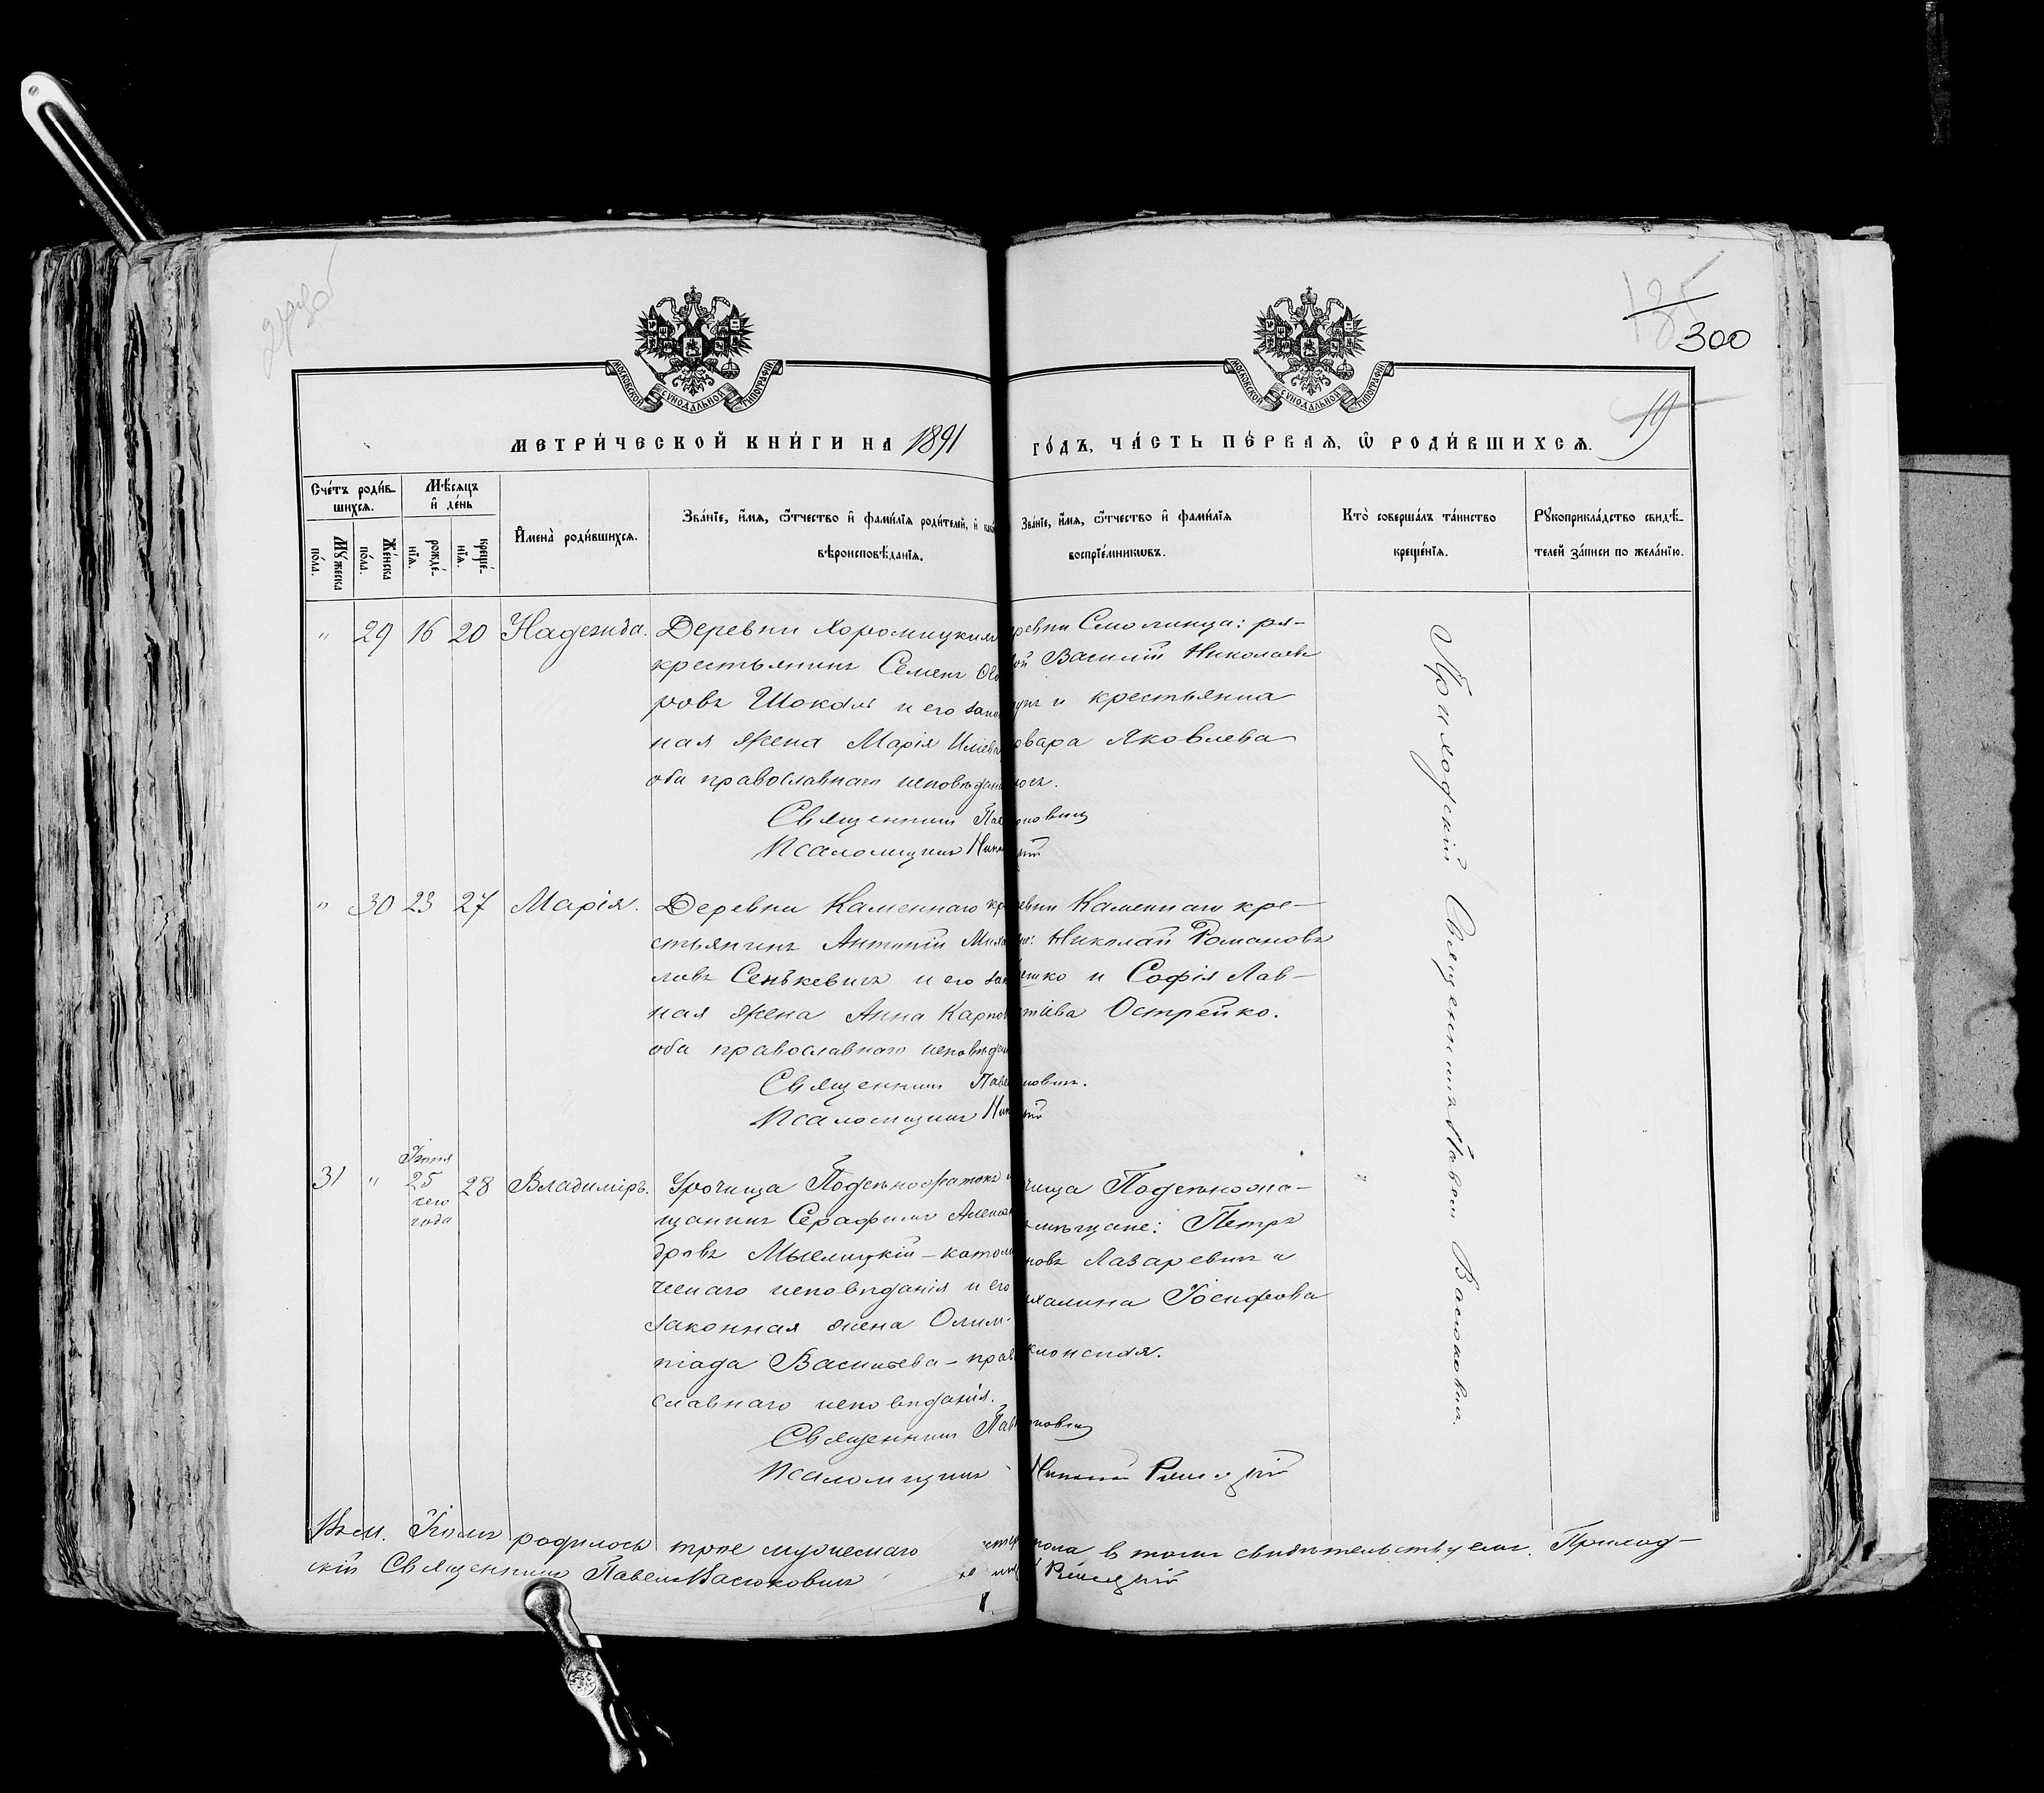 135
300
19
МОСКОВСКОЙ СУНОДАЛЬНОЙ ТИПОГРАФІИ.
МОСКОВСКОЙ СУНОДАЛЬНОЙ ТИПОГРАФІИ.
МЕТРИ́ЧЕСКОЙ КНИ́ГИ НА 1891
ГО́ДЪ, ЧА́СТЬ ПЕ́РВАѦ, Ѡ҆ РОДИ́ВШИХСѦ.
Сче́тъ роди́в-
шихсѧ.
Мꙋ́жеска по́ла.
Же́нска по́ла.
Мѣ́сѧцъ
и҆ де́нь
рожде́-
нїѧ.
креще́-
нїѧ.
И҆мена̀ роди́вшихсѧ.
Зва́нїе, и҆́мѧ, ѻ҆́тчество и҆ фами́лїѧ роди́телей, и҆ како
вѣроисповѣ́данїѧ.
Зва́нїе, и҆́мѧ, ѻ҆́тчество и҆ фами́лїѧ
воспрїе́мникѡвъ.
Кто̀ соверша́лъ та́инство
креще́нїѧ.
Рꙋкоприкла́дство свидѣ́-
телей за́писи по жела́нїю.
" 29 16 20 Надежда.
Деревни Хоромицкихъ
крестьянинъ Семенъ
ровъ Шокаль и его зако
ная жена Марія Иліева
оба православнаго исповѣдан
Священникъ Пав
Псаломщикъ Ник
ревни Смолинца: ря-
вой Василій Николаев
и крестьянка
вара Яковлева
Приходскій Священникъ Павелъ Васюковичъ.
" 30 23 27 Марія.
Деревни Каменнаго кр
стьянинъ Антоній Миха
ловъ Сенькевичъ и его зак
ная жена Анна Карпов
оба православнаго исповѣдан
Священникъ Паве
Псаломщикъ Ник
евни Каменнаго кре-
не: Николай Романовъ
ешко и Софія Лав-
тіева Острейко.
31 " Іюня 25 сего года 28 Владиміръ.
Урочища
щанинъ Серафимъ Алексан
дровъ Мыслицкій - католи
ческаго исповѣданія и его
законная жена Олим-
піада Васильева - прав
славнаго исповѣданія.
Священникъ Пав
Псаломщикъ
чища
мѣщане: Петръ
новъ Лазаревичъ и
халина Іосифова
новичъ
родилось трое мужескаго
пола въ томъ свидѣтельствуемъ. Приход-
скій Священникъ Павелъ Васюковичъ